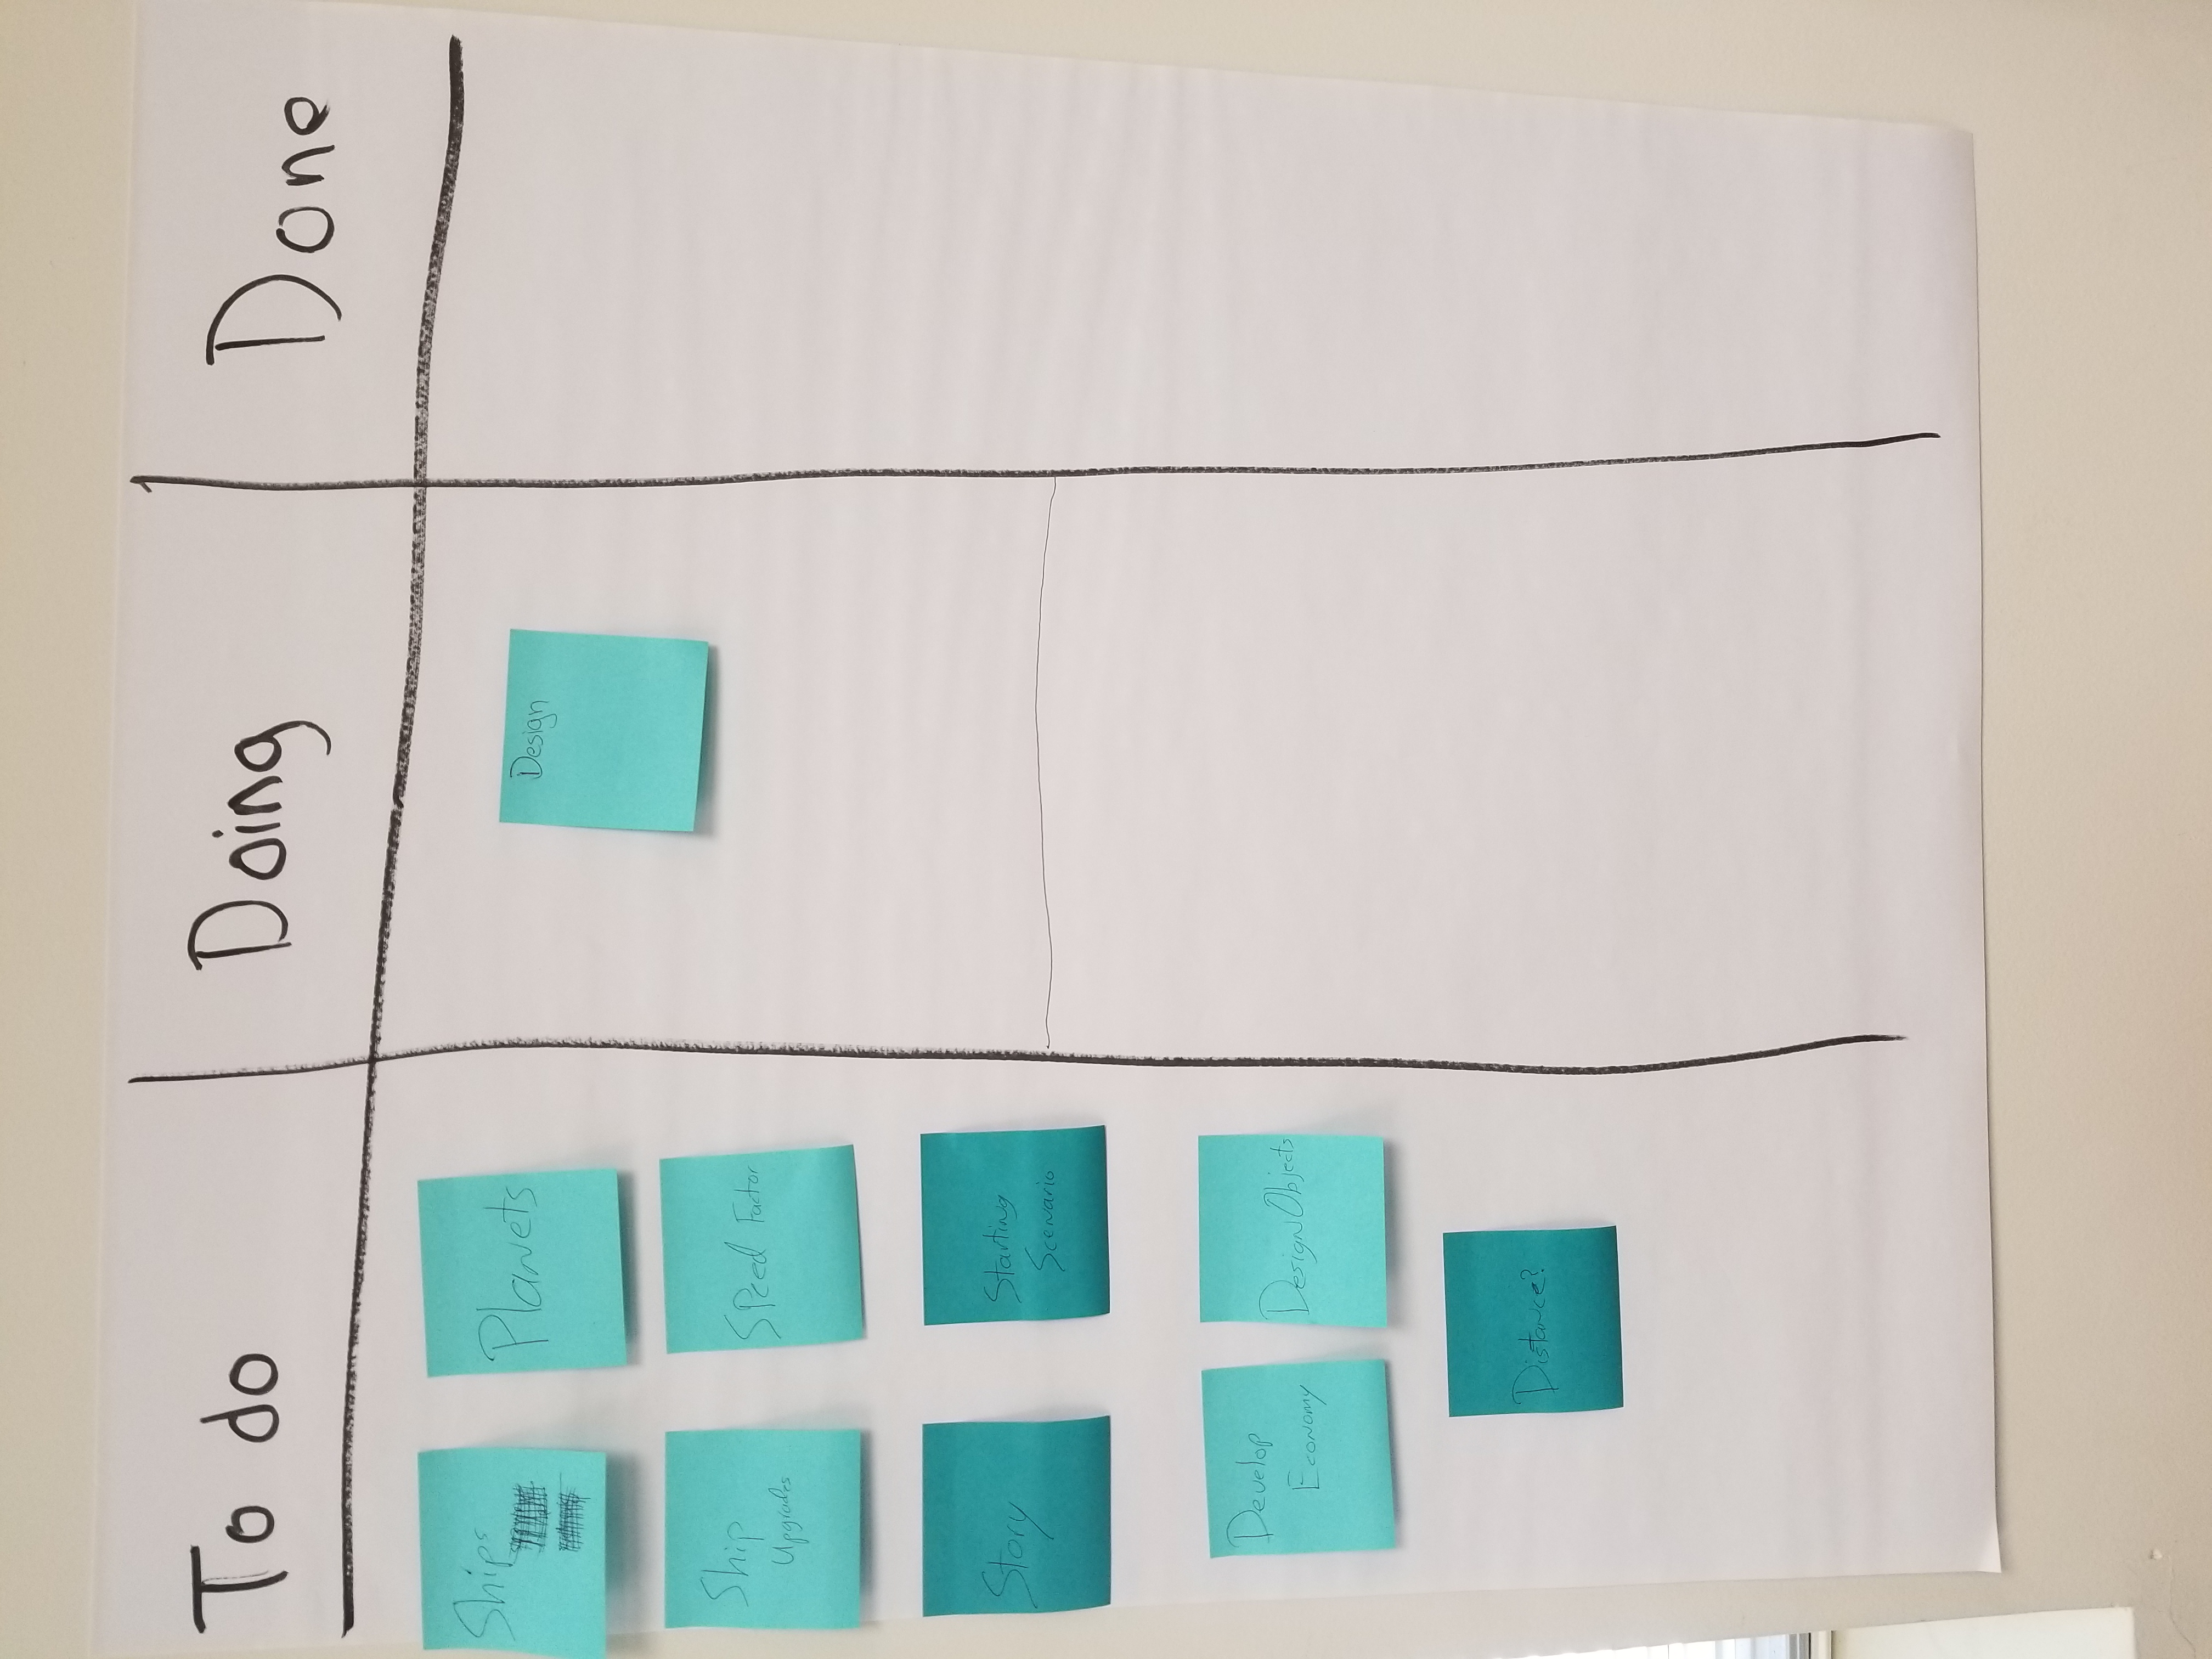 To do
Doing
Done
Ships
Planets
Ship
Upgrades
Speed Factor
Story
Starting
Scenario
Develop
Economy
Design Objects
Distance?
Design